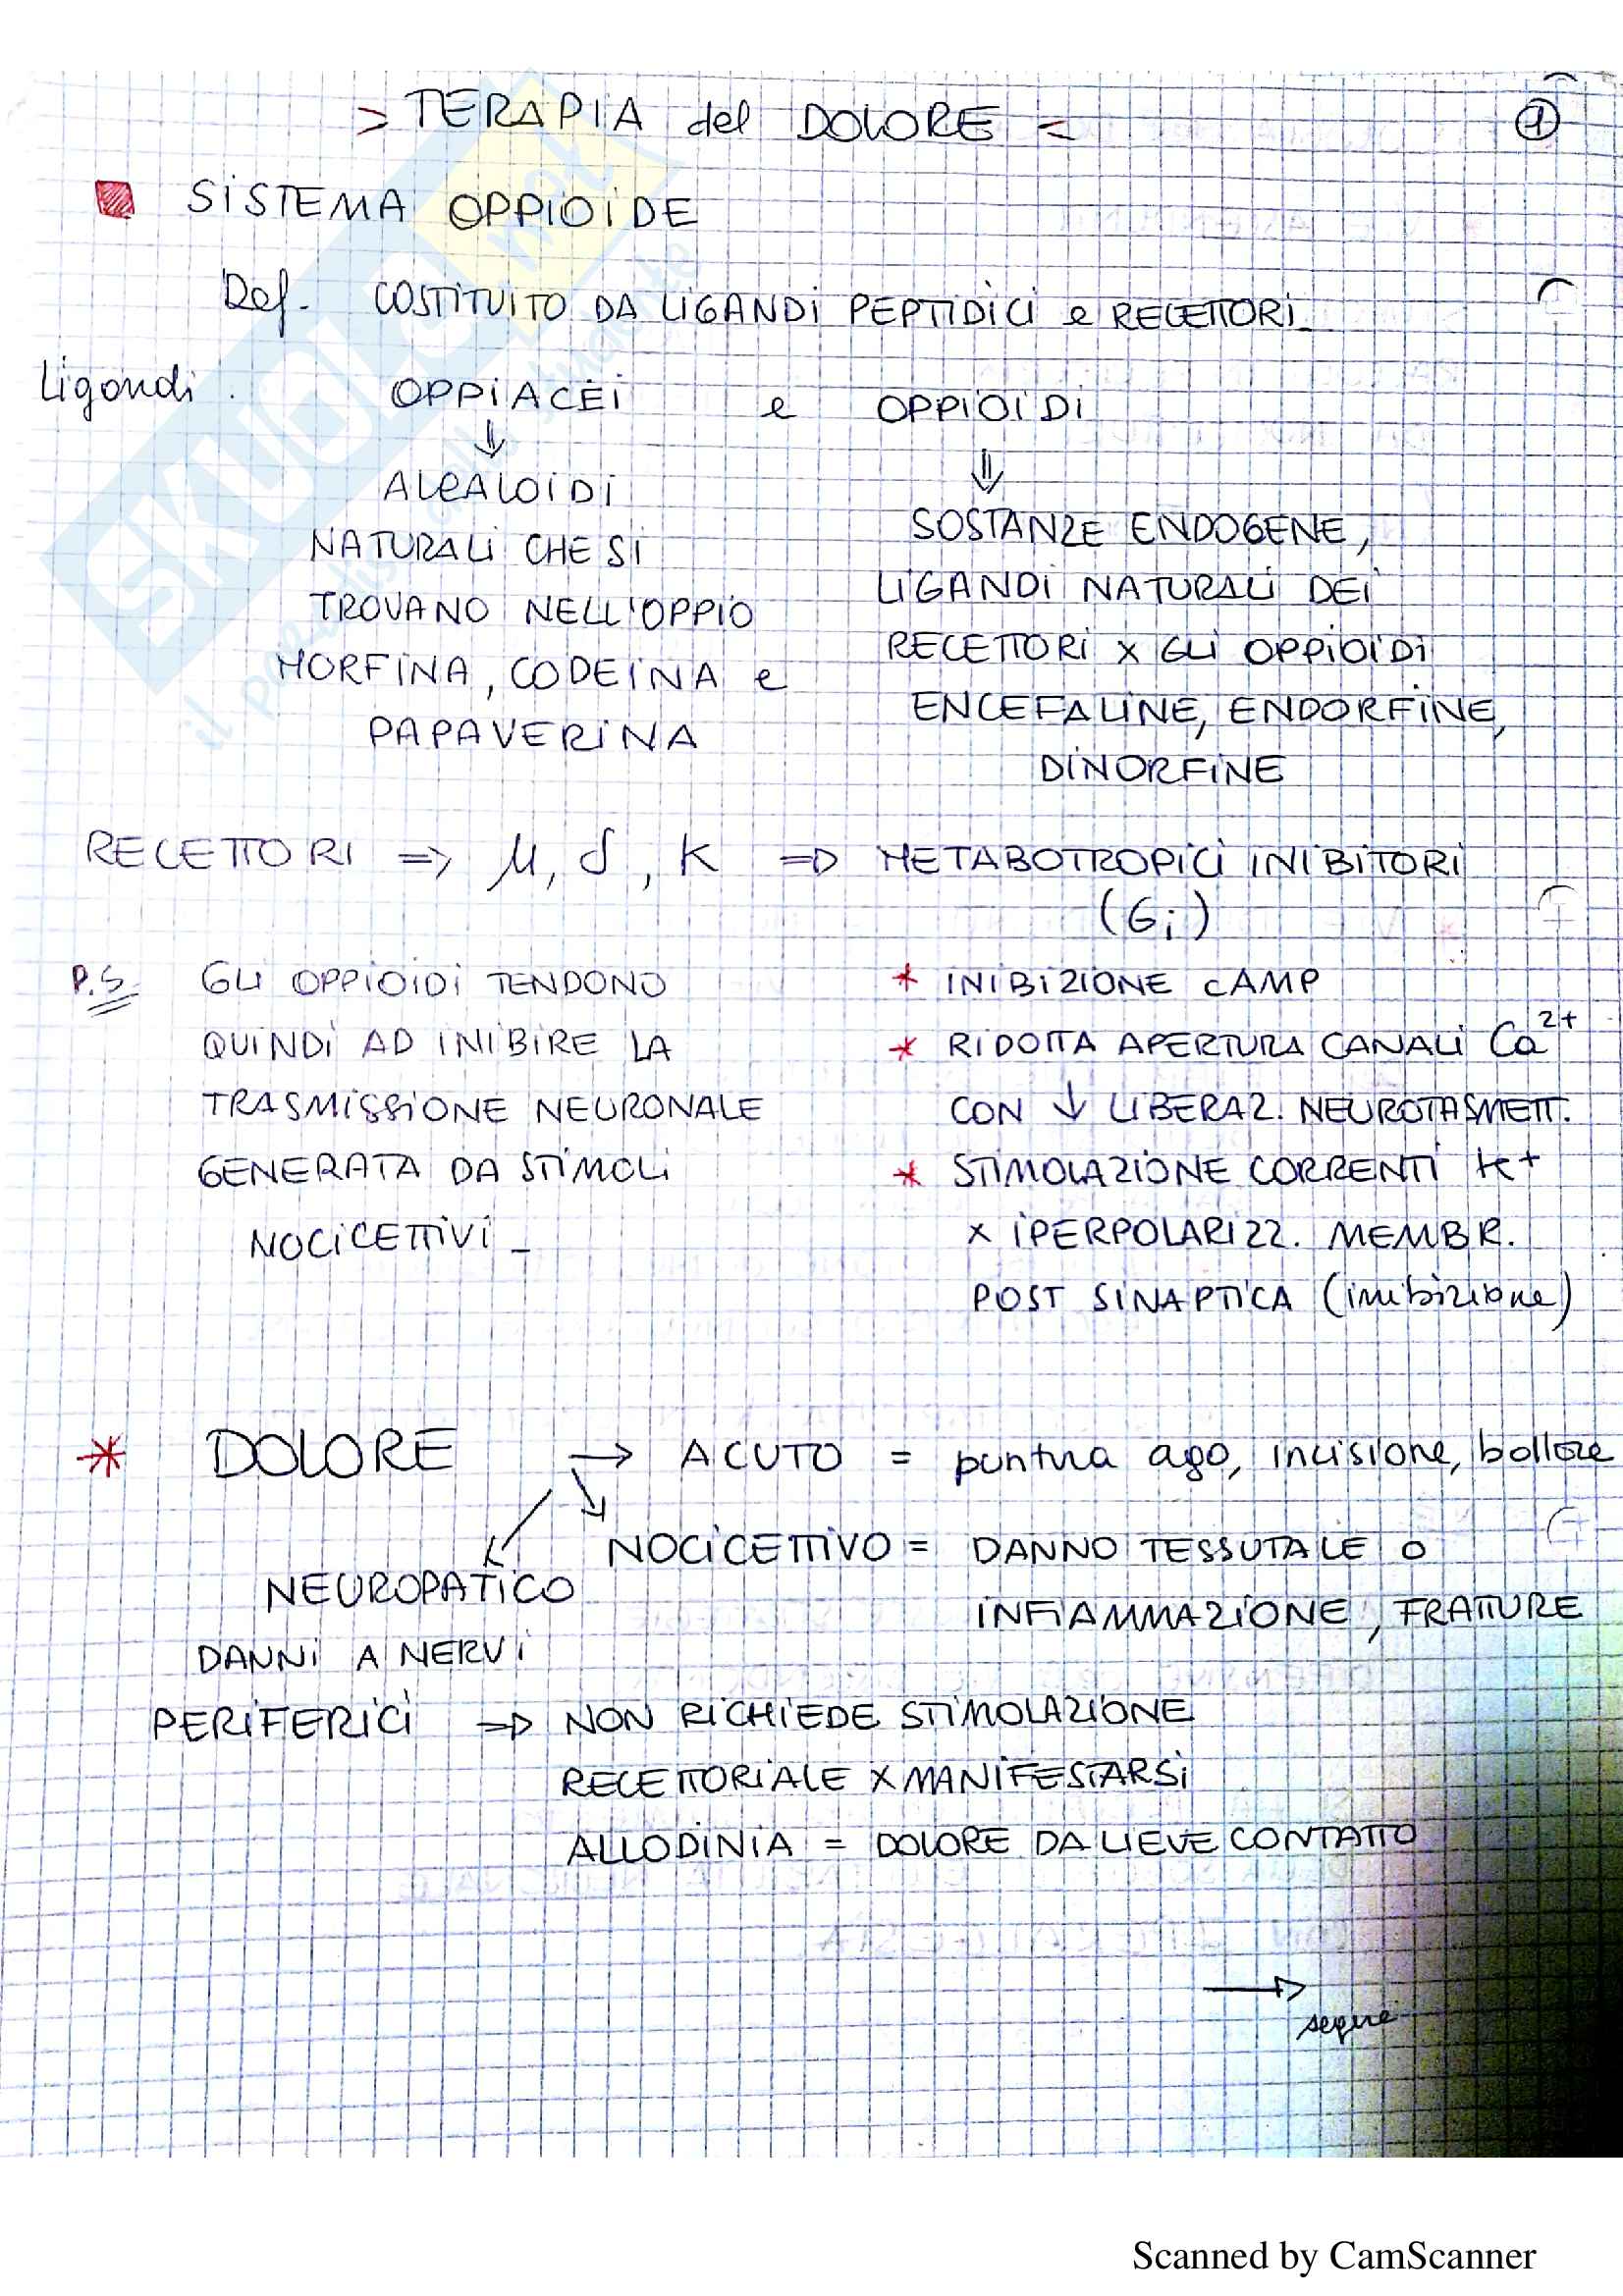 > TERAPIA del DOLORE <
1
SISTEMA OPPIOIDE
Def. COSTITUITO DA LIGANDI PEPTIDICI e RECETTORI
Ligandi: OPPIACEI e OPPIOIDI
⇓ ⇓
ALCALOIDI
NATURALI CHE SI
TROVANO NELL'OPPIO
MORFINA, CODEINA e
PAPAVERINA
SOSTANZE ENDOGENE,
LIGANDI NATURALI DEI
RECETTORI x GLI OPPIOIDI
ENCEFALINE, ENDORFINE,
DINORFINE
RECETTORI => μ, δ, K => METABOTROPICI INIBITORI
(Gi)
P.S. GLI OPPIOIDI TENDONO
QUINDI AD INIBIRE LA
TRASMISSIONE NEURONALE
GENERATA DA STIMOLI
NOCICETTIVI_
* INIBIZIONE cAMP
* RIDOTTA APERTURA CANALI Ca2+
CON ↓ LIBERAZ. NEUROTASMETT.
* STIMOLAZIONE CORRENTI K+
x IPERPOLARIZZ. MEMBR.
POST SINAPTICA (inibizione)
* DOLORE → ACUTO = puntura ago, incisione, bollore
NOCICETTIVO = DANNO TESSUTALE O
INFIAMMAZIONE, FRATTURE
NEUROPATICO
DANNI A NERVI
PERIFERICI => NON RICHIEDE STIMOLAZIONE
RECETTORIALE x MANIFESTARSI
ALLODINIA = DOLORE DA LIEVE CONTATTO
→
segue
SKUOLA.net
Scanned by CamScanner